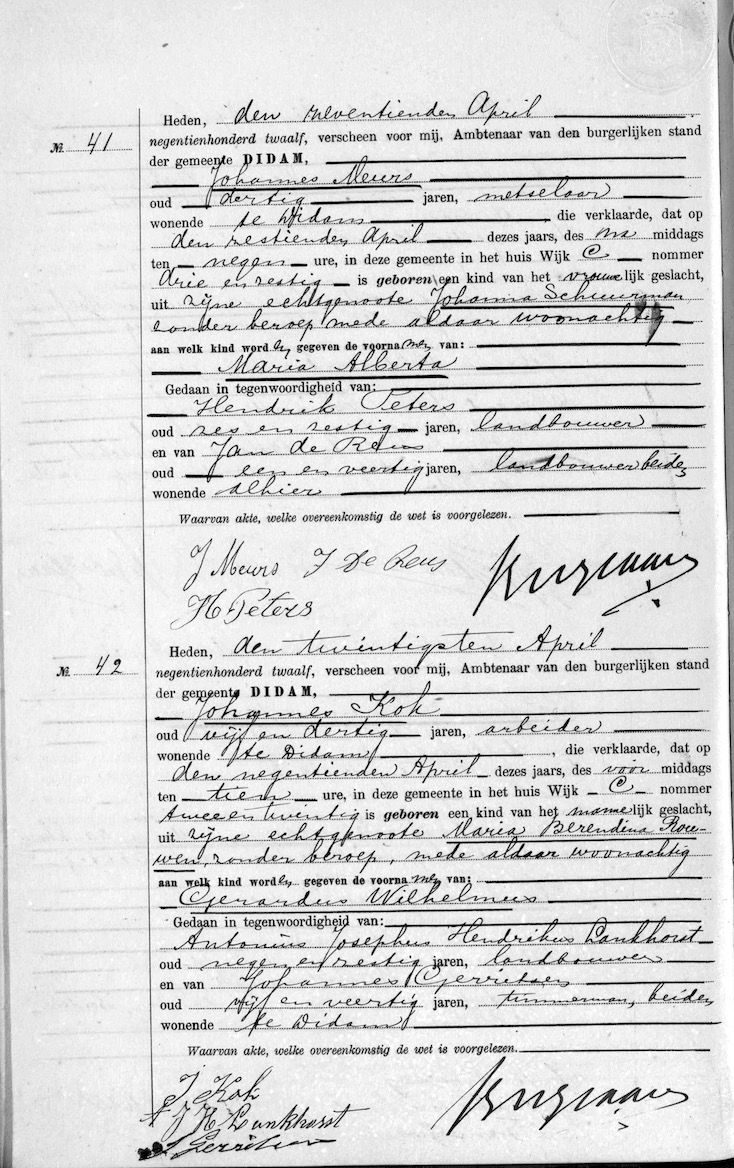 Heden, den zeventienden April
№ 41 negentienhonderd twaalf, verscheen voor mij, Ambtenaar van den burgerlijken stand
der gemeente DIDAM,
Johannes Meurs
oud dertig jaren, metselaar
wonende te Didam, die verklaarde, dat op
den zestienden April dezes jaars, des na middags
ten negen ure, in deze gemeente in het huis Wijk C nommer
drie en zestig is geboren een kind van het vrouwelijk geslacht,
uit zijne echtgenoote Johanna Scheurman
zonder beroep mede aldaar woonachtig
aan welk kind worden gegeven de voornamen van:
Maria Alberta
Gedaan in tegenwoordigheid van:
Hendrik Peters
oud zes en zestig jaren, landbouwer
en van Jan de Reus
oud een en veertig jaren, landbouwer beide
wonende alhier
Waarvan akte, welke overeenkomstig de wet is voorgelezen.
J Meurs J De Reus
H Peters
Heden, den twintigsten April
№ 42 negentienhonderd twaalf, verscheen voor mij, Ambtenaar van den burgerlijken stand
der gemeente DIDAM,
Johannes Kok
oud vijf en dertig jaren, arbeider
wonende te Didam, die verklaarde, dat op
den negentienden April dezes jaars, des voor middags
ten tien ure, in deze gemeente in het huis Wijk C nommer
twee en twintig is geboren een kind van het mannelijk geslacht,
uit zijne echtgenoote Maria Berendina Rou-
wen, zonder beroep, mede aldaar woonachtig
aan welk kind worden gegeven de voornamen van:
Gerardus Wilhelmus
Gedaan in tegenwoordigheid van:
Antonius Josephus Hendrikus Lankhorst
oud negen en zestig jaren, landbouwer
en van Johannes Gerritsen
oud vijf en veertig jaren, timmerman, beiden
wonende te Didam
Waarvan akte, welke overeenkomstig de wet is voorgelezen.
J Kok
A J H Lankhorst
Gerritsen